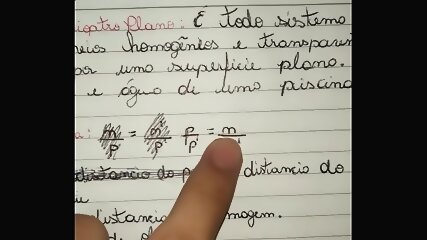 ioptro Plano: É todo sistema
eios homogênios e transparen
or uma superfície plana.
e água de uma piscina
a: p/p' = n
distancia do p distancia do
distancia magem.